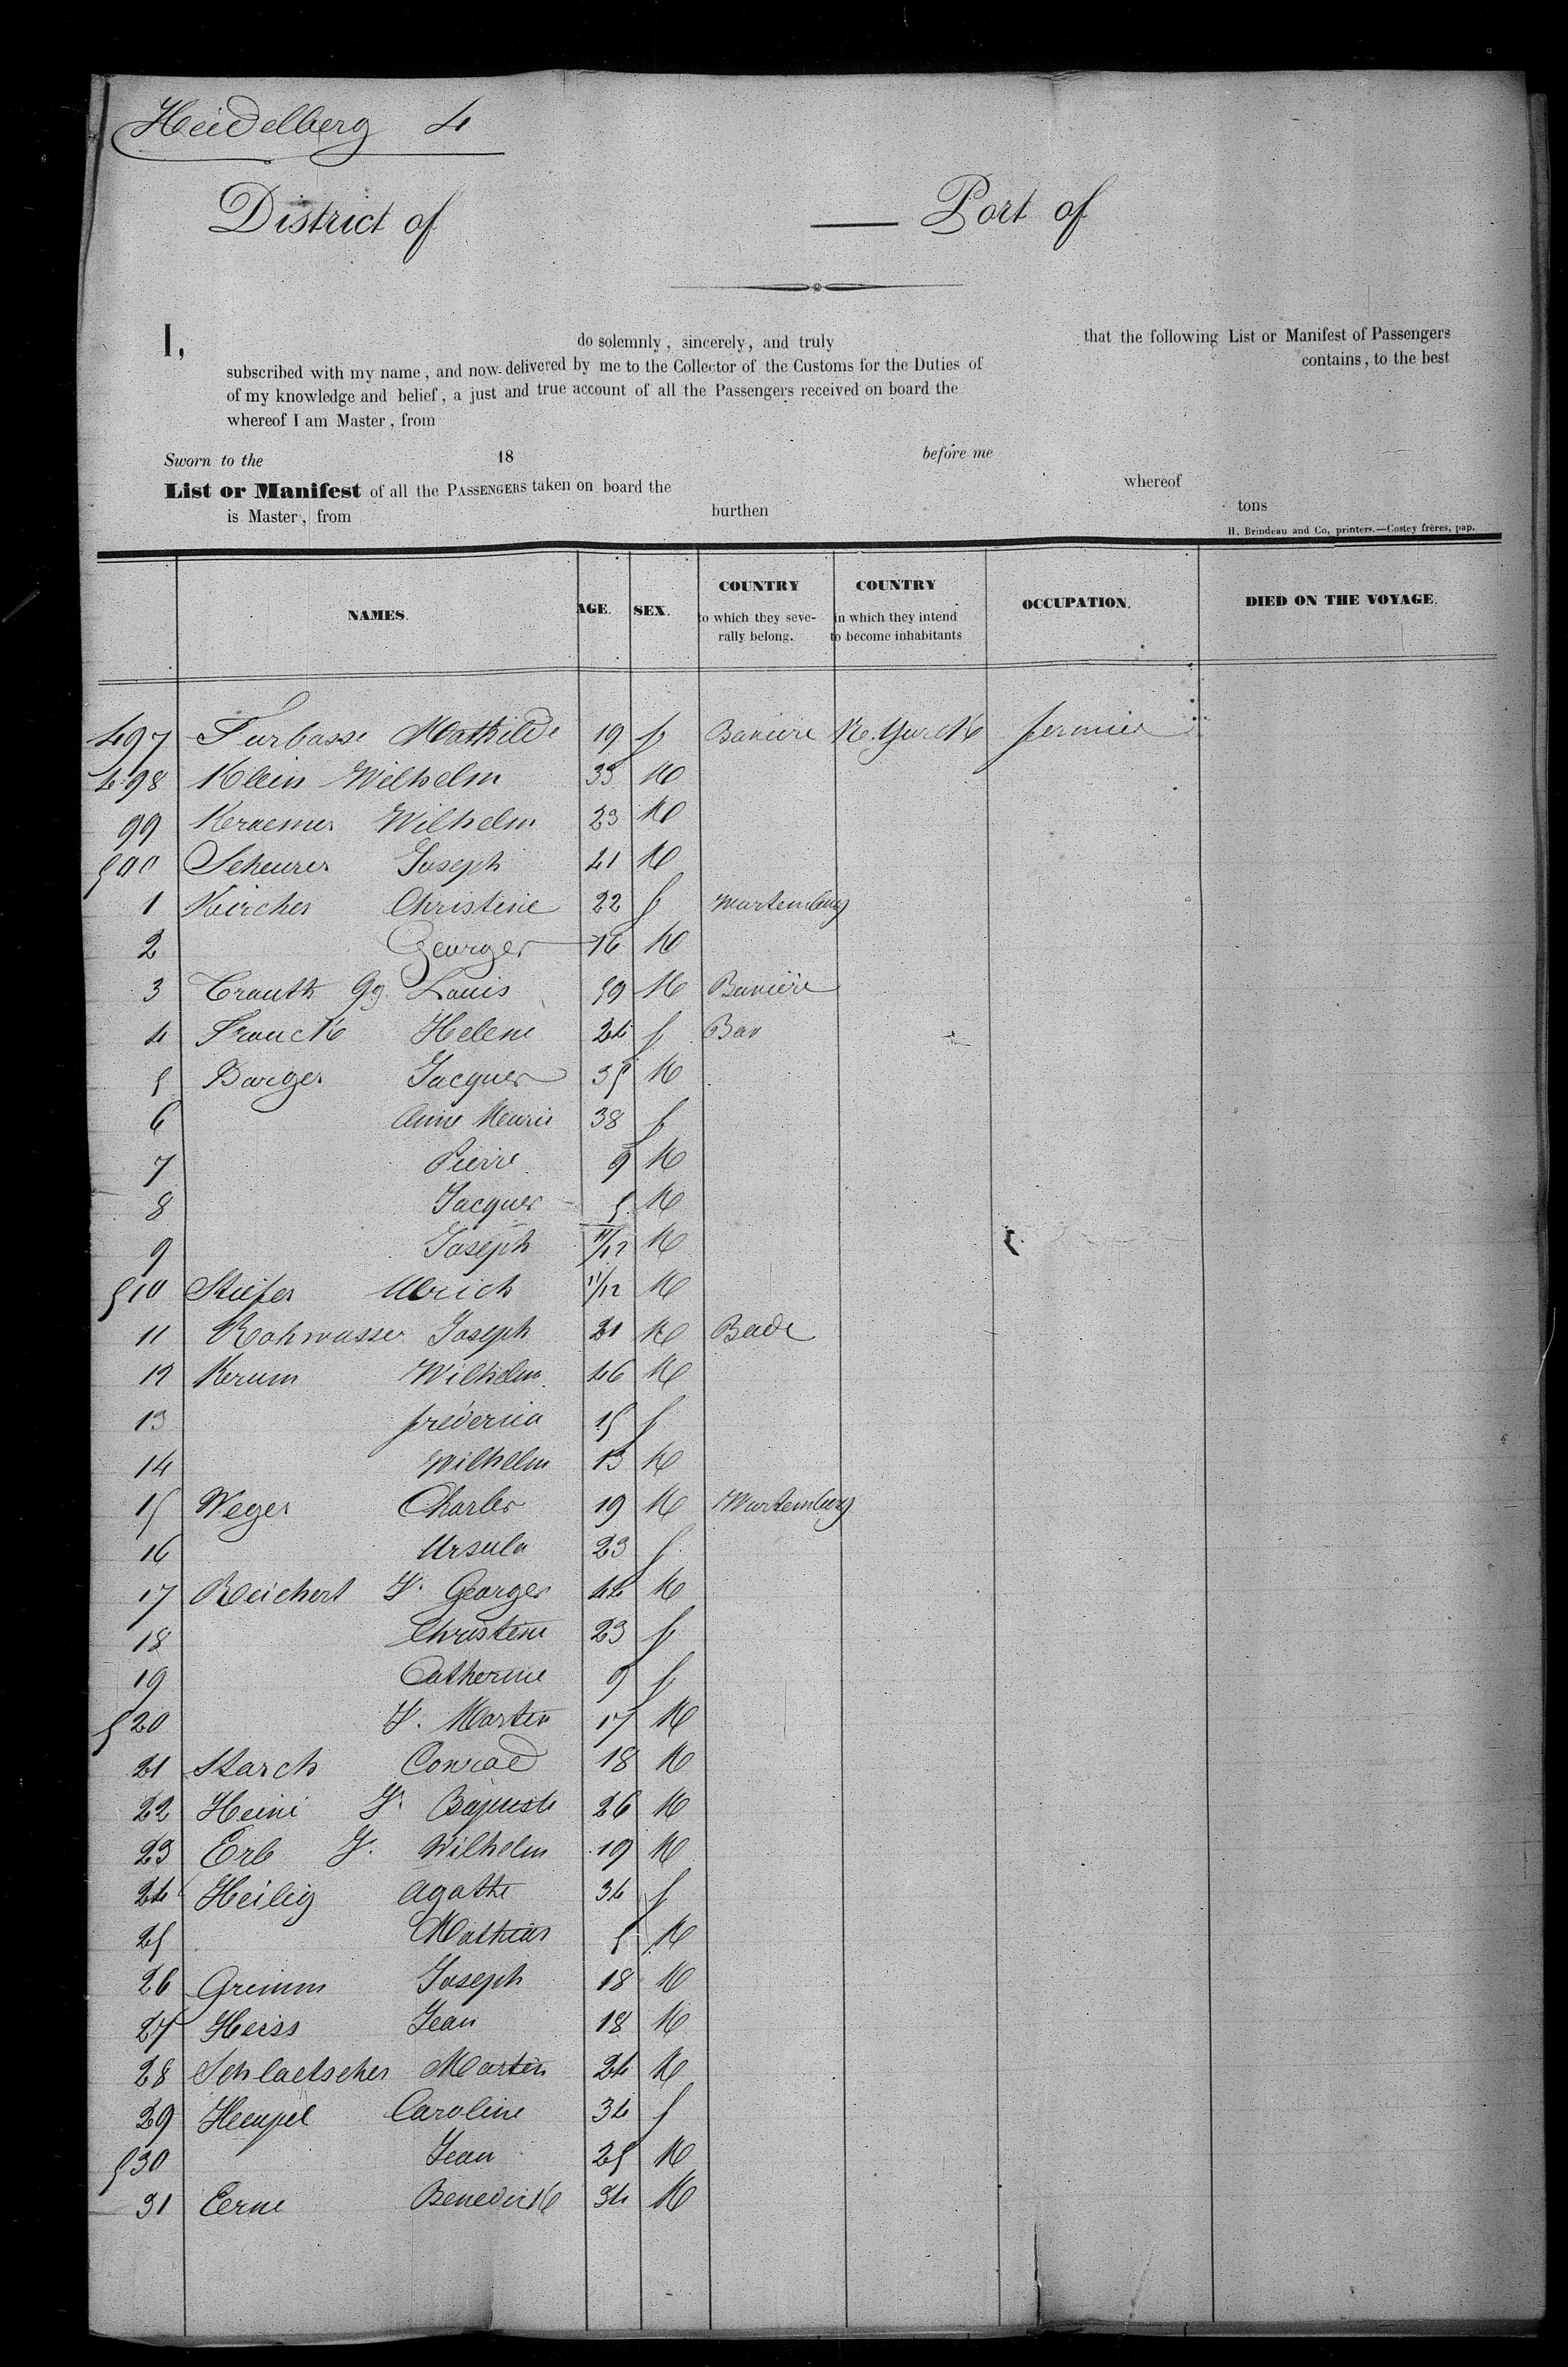 Heidelberg 4
District of Port of
I, do solemnly, sincerely, and truly that the following List or Manifest of Passengers
subscribed with my name, and now delivered by me to the Collector of the Customs for the Duties of contains, to the best
of my knowledge and belief, a just and true account of all the Passengers received on board the
whereof I am Master, from
Sworn to the 18 before me
List or Manifest of all the PASSENGERS taken on board the whereof
is Master, from burthen tons
H. Brindeau and Co, printers.—Costey frères, pap.
NAMES. AGE. SEX. COUNTRY to which they severally belong. COUNTRY in which they intend to become inhabitants OCCUPATION. DIED ON THE VOYAGE.
497 Furbasse Mathilde 19 f Baviere Ne. Yorck fermier
498 Klein Wilhelm 33 M
99 Kraemer Wilhelm 23 M
500 Scheurer Joseph 41 M
1 Kircher Christine 22 f Wurtemburg
2 Georges 16 M
3 Crauth Gg. Louis 59 M Bavière
4 Franck Helene 24 f Bav
5 Barger Jacques 35 M
6 Anne Marie 38 f
7 Pierre 9 M
8 Jacques 5 M
9 Joseph 11/12 M
510 Stiefer Ulrich 11/12 M
11 Rohwasser Joseph 21 M Bade
12 Kerum Wilhelm 46 M
13 frederica 15 f
14 Wilhelm 13 M
15 Weger Charles 19 M Wurtemburg
16 Ursula 23 f
17 Reichert J. Georges 44 M
18 Christine 23 f
19 Catherine 9 f
520 J. Martin 17 M
21 Starch Conrad 18 M
22 Heini J. Baptiste 26 M
23 Erb J. Wilhelm 19 M
24 Heilig Agathe 34 f
25 Mathias 5 M
26 Grimm Joseph 18 M
27 Heiss Jean 18 M
28 Schlaetscher Martin 24 M
29 Hempel Caroline 34 f
530 Jean 25 M
31 Eerne Benedick 34 M